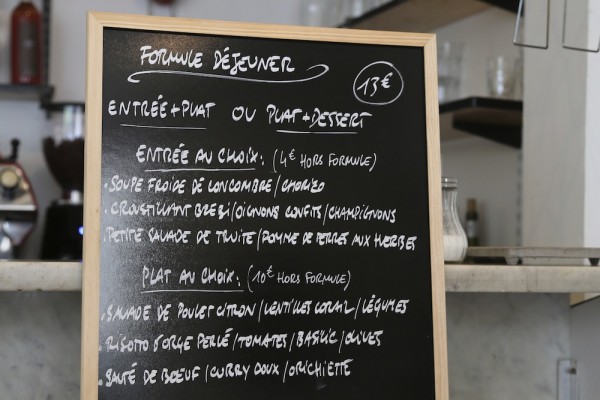 FORMULE DÉJEUNER
13€
ENTRÉE+PLAT OU PLAT+DESSERT
ENTRÉE AU CHOIX: (4€ HORS FORMULE)
.SOUPE FROIDE DE CONCOMBRE/CHORIZO
.CROUSTILLANT BREBI/OIGNONS CONFITS/CHAMPIGNONS
.PETITE SALADE DE TRUITE/POMME DE TERRES AUX HERBES
PLAT AU CHOIX: (10€ HORS FORMULE)
.SALADE DE POULET CITRON/LENTILLES CORAIL/LÉGUMES
.RISOTTO D'ORGE PERLÉ/TOMATES/BASILIC/OLIVES
.SAUTÉ DE BŒUF/CURRY DOUX/ORICHIETTE